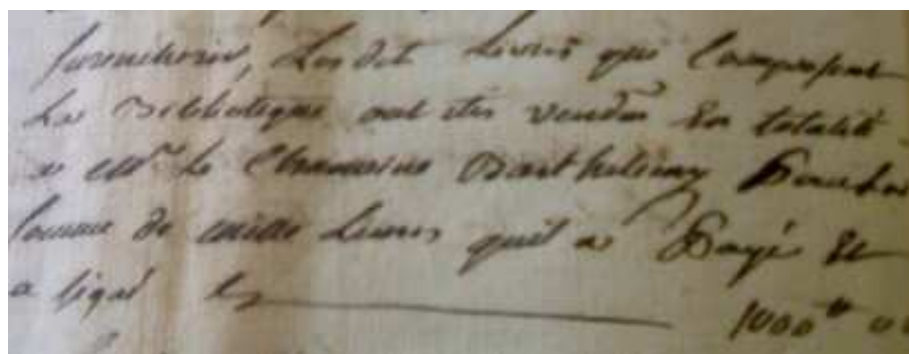 fermiherie, Les dit Livres qui Composent
La Biblioteque ont étés vendus En totalité
a Mr. Le Chanoine Barthelemy Pour la
somme de mille Livres quil a Payé Et
a signé 1000tt